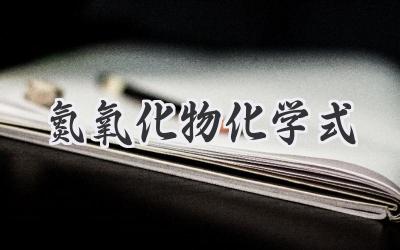 氮氧化物化学式